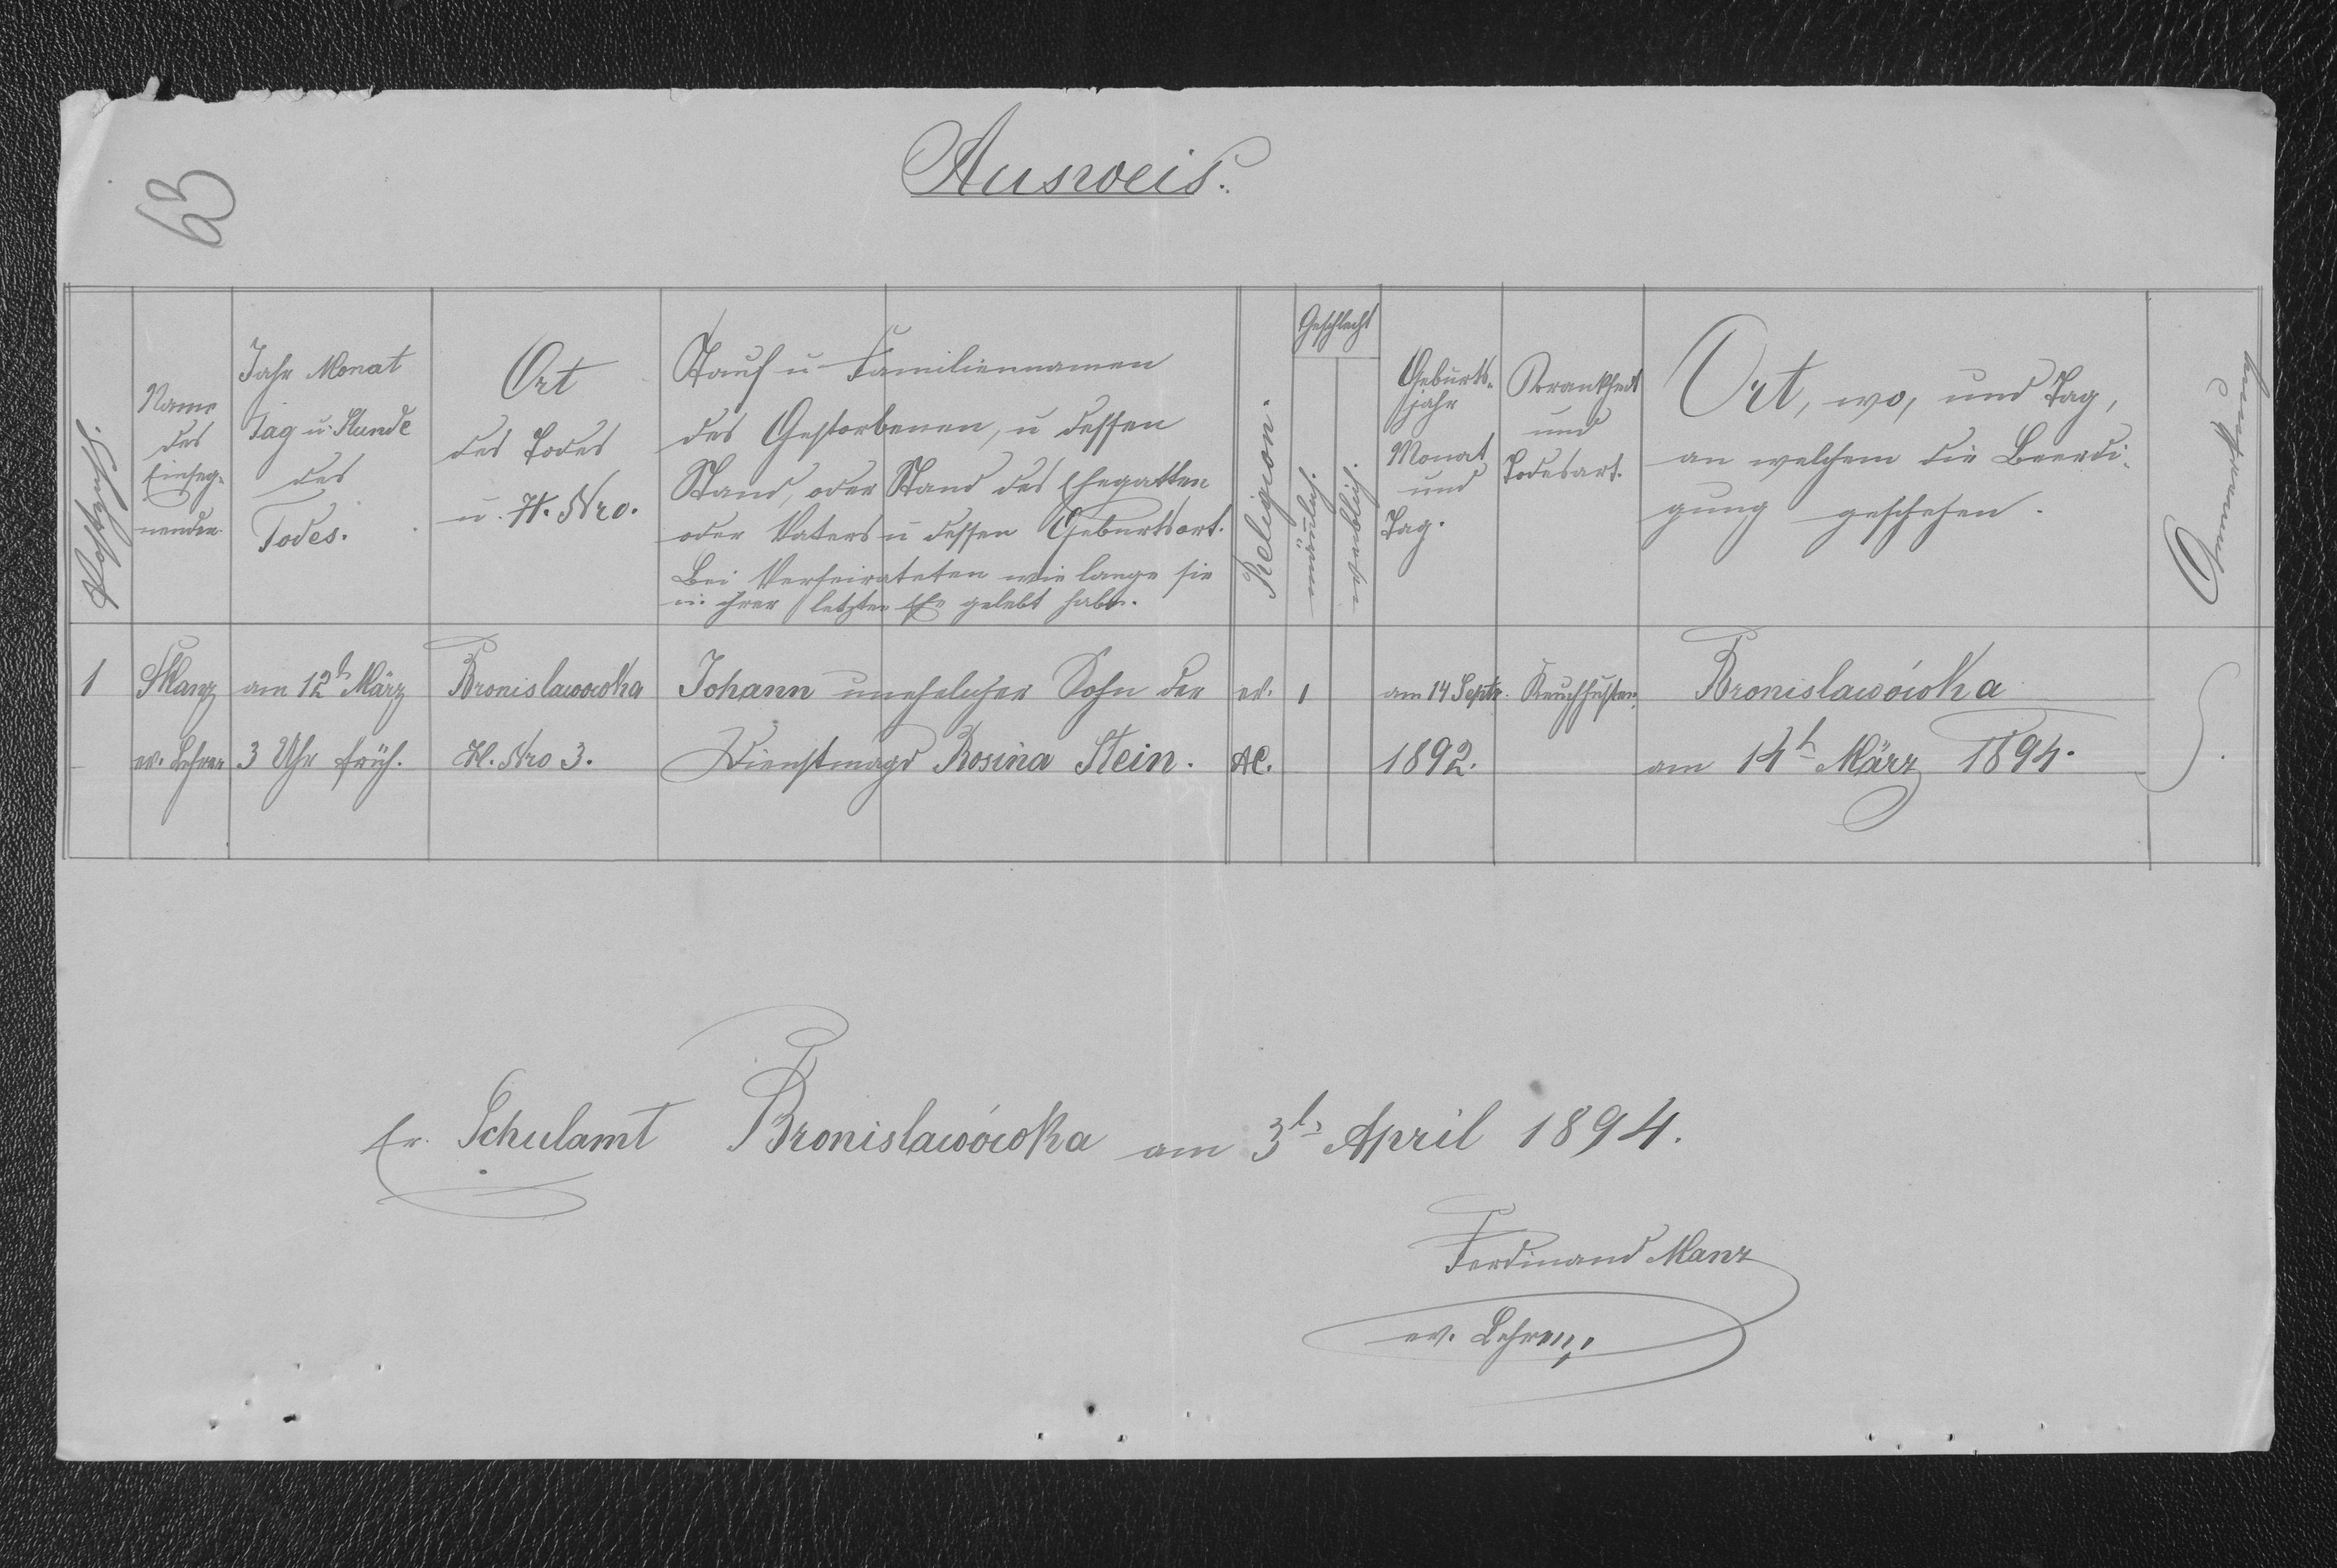 63
Ausweis.
Postzahl.
Name
des
Einseg-
nenden
Jahr Monat
Tag u. Stunde
des
Todes.
Ort
des Todes
u. H. Nro.
Tauf u Familiennamen
des Gestorbenen, u dessen
Stand, oder Stand des Ehegatten
oder Vaters u dessen Geburtsort.
Bei Verheirateten wie lange sie
in ihrer letzten Ehe gelebt habn.
Religion.
Geschlecht
männlich.
weiblich.
Geburts-
jahr
Monat
und
Tag.
Krankheit
und
Todesart.
Ort, wo, und Tag,
an welchem die Beerdi-
gung geschehen.
Anmerkung
1 Manz am 12t März Bronislawówka Johann unehelicher Sohn der ev. 1 am 14 Septr. Keuchhusten. Bronislawówka
ev. Lehrer 3 Uhr früh. H. Nro 3. Dienstmagd Rosina Stein. AC. 1892. am 14t März 1894.
Ev. Schulamt Bronislawówka am 3t April 1894.
Ferdinand Manz
ev. Lehrer